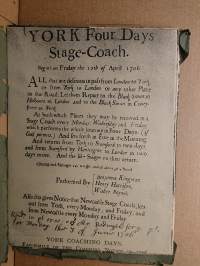 YORK Four Days
Stage-Coach.
Begins on Friday the 12th of April 1706
ALL that are desirous to pass from London to York,
or from York to London or any other Place
on that Road, Let them Repair to the Black Swan in
Holborn in London and to the Black Swan in Coney-
street in York
At both which Places they may be received in a
Stage Coach every Monday, Wednesday and Friday
which performs the whole Journey in Four Days (if
God permits.) And sets forth at Five in the Morning
And returns from York to Stamford in two days
and from Stamford by Huntington to London in two
days more. And the like Stages on their return
Performed By
Benjamin Kingman
Henry Harrison
Walter Bayne's
Also this gives Notice that Newcastle Stage Coach, sets
out from York, every Monday, and Friday, and
from Newcastle every Monday and Friday
YORK COACHING DAYS.